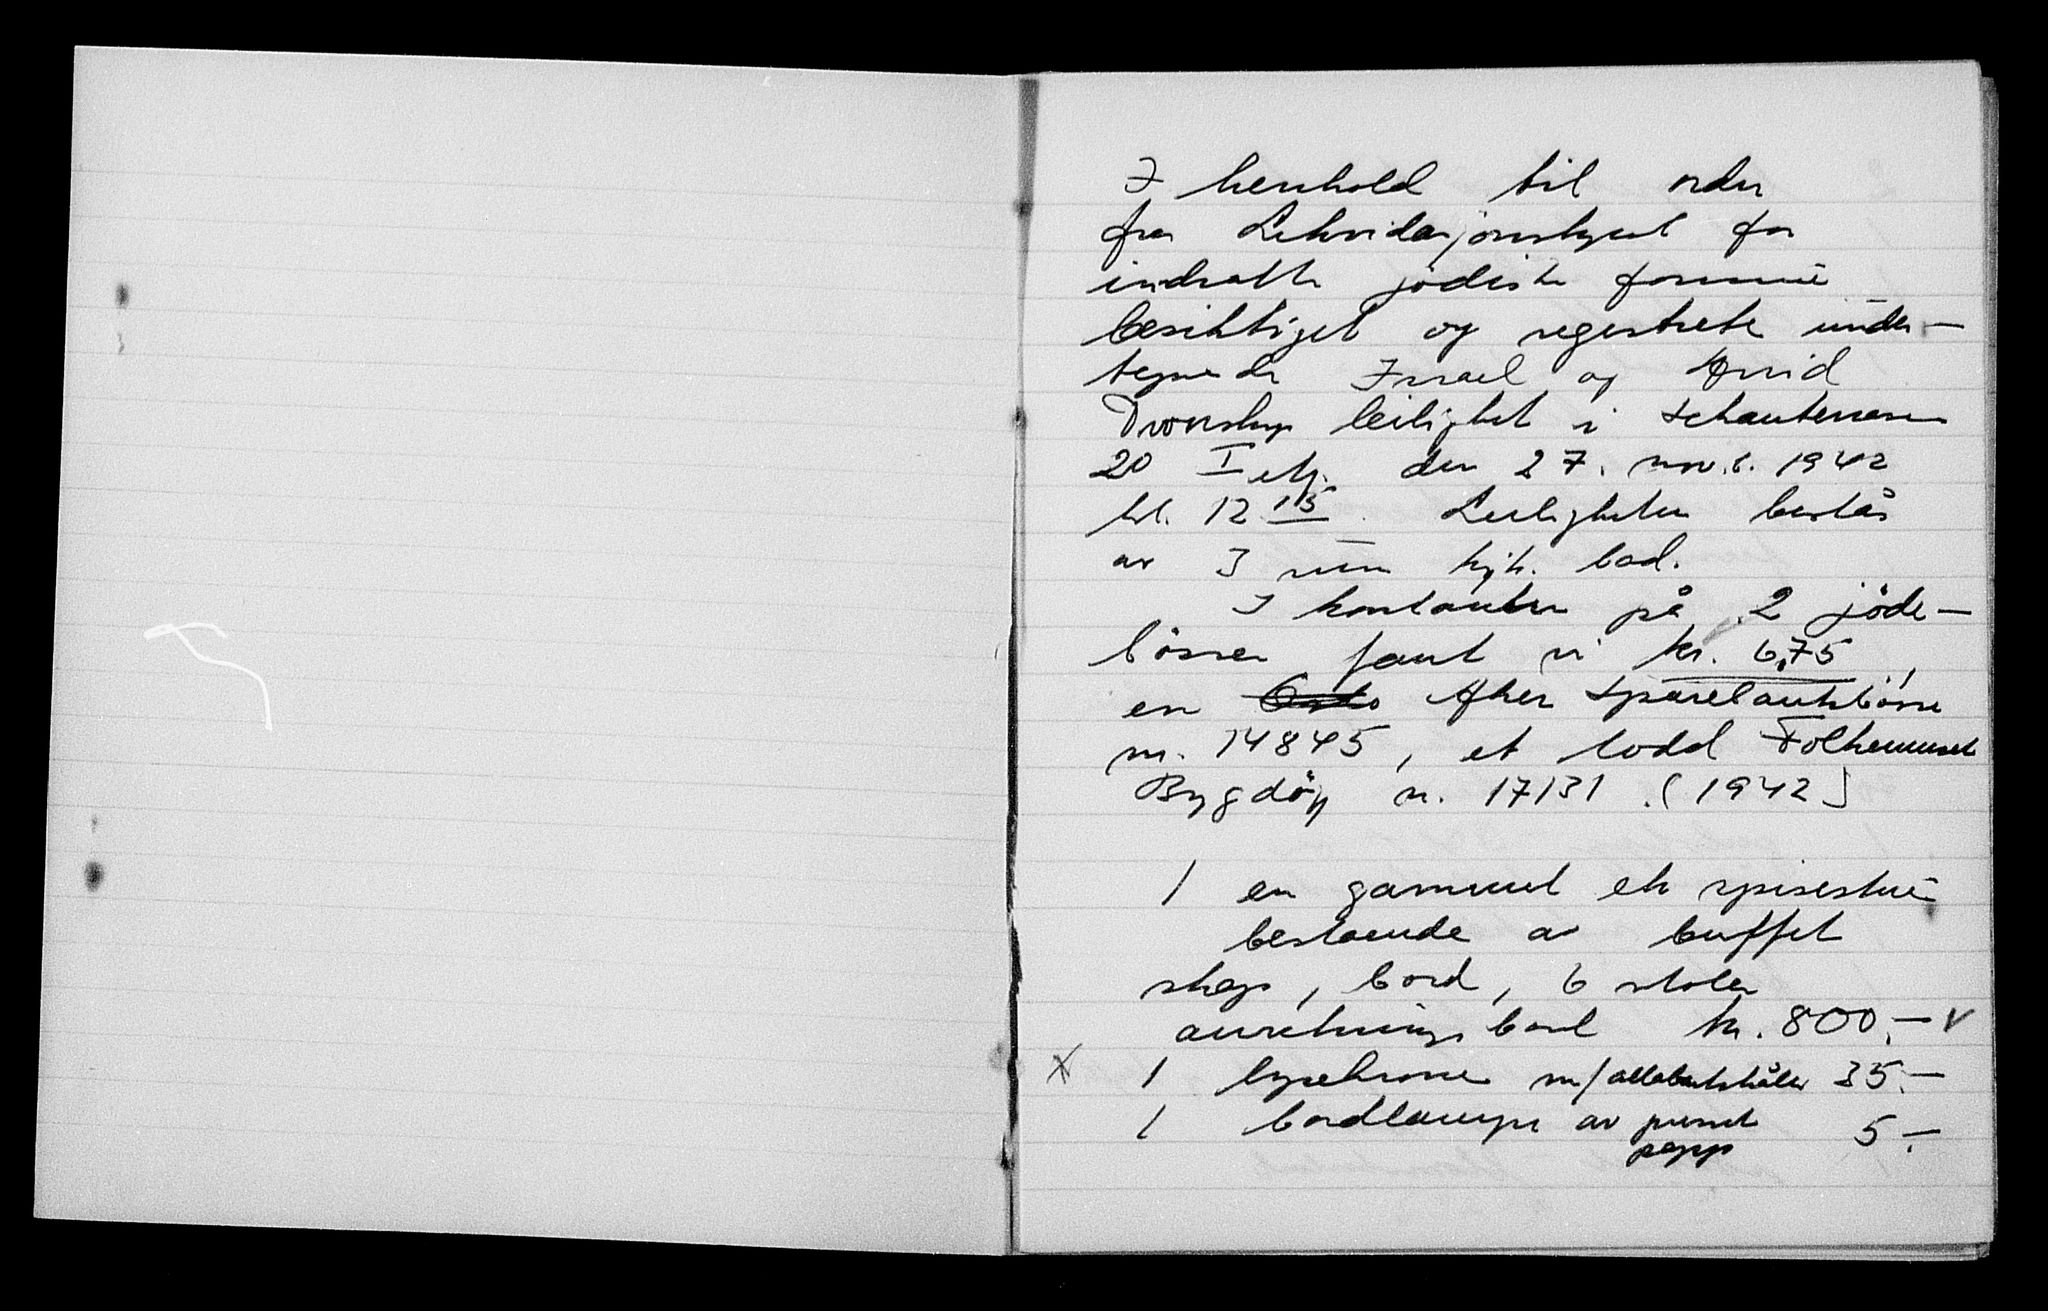 I henhold til order
fra Likvidasjonstyret for
inndratte jødiske formue
besiktiget og registrete under-
tegnede Israel og Arvid
Dvorsky leilighet i Schauterrasse
20 I etg. den 27. nov.b. 1942
kl. 12 15. Leiligheten består
av 3 rum kjk. bad.
I kontanter på 2 jøde-
bösser fant vi kr. 6,75,
en Aker
nr. 14845, et lodd Folkemuset
Bygdöy nr. 17131. (1942)
1 en gammel ek spisestue
bestaaende av buffet
skap, bord, 6 stoler
anretnings bord kr. 800.- v
x 1 lysekrone m/ 35.-
1 bordlampe av presset
papp 5.-